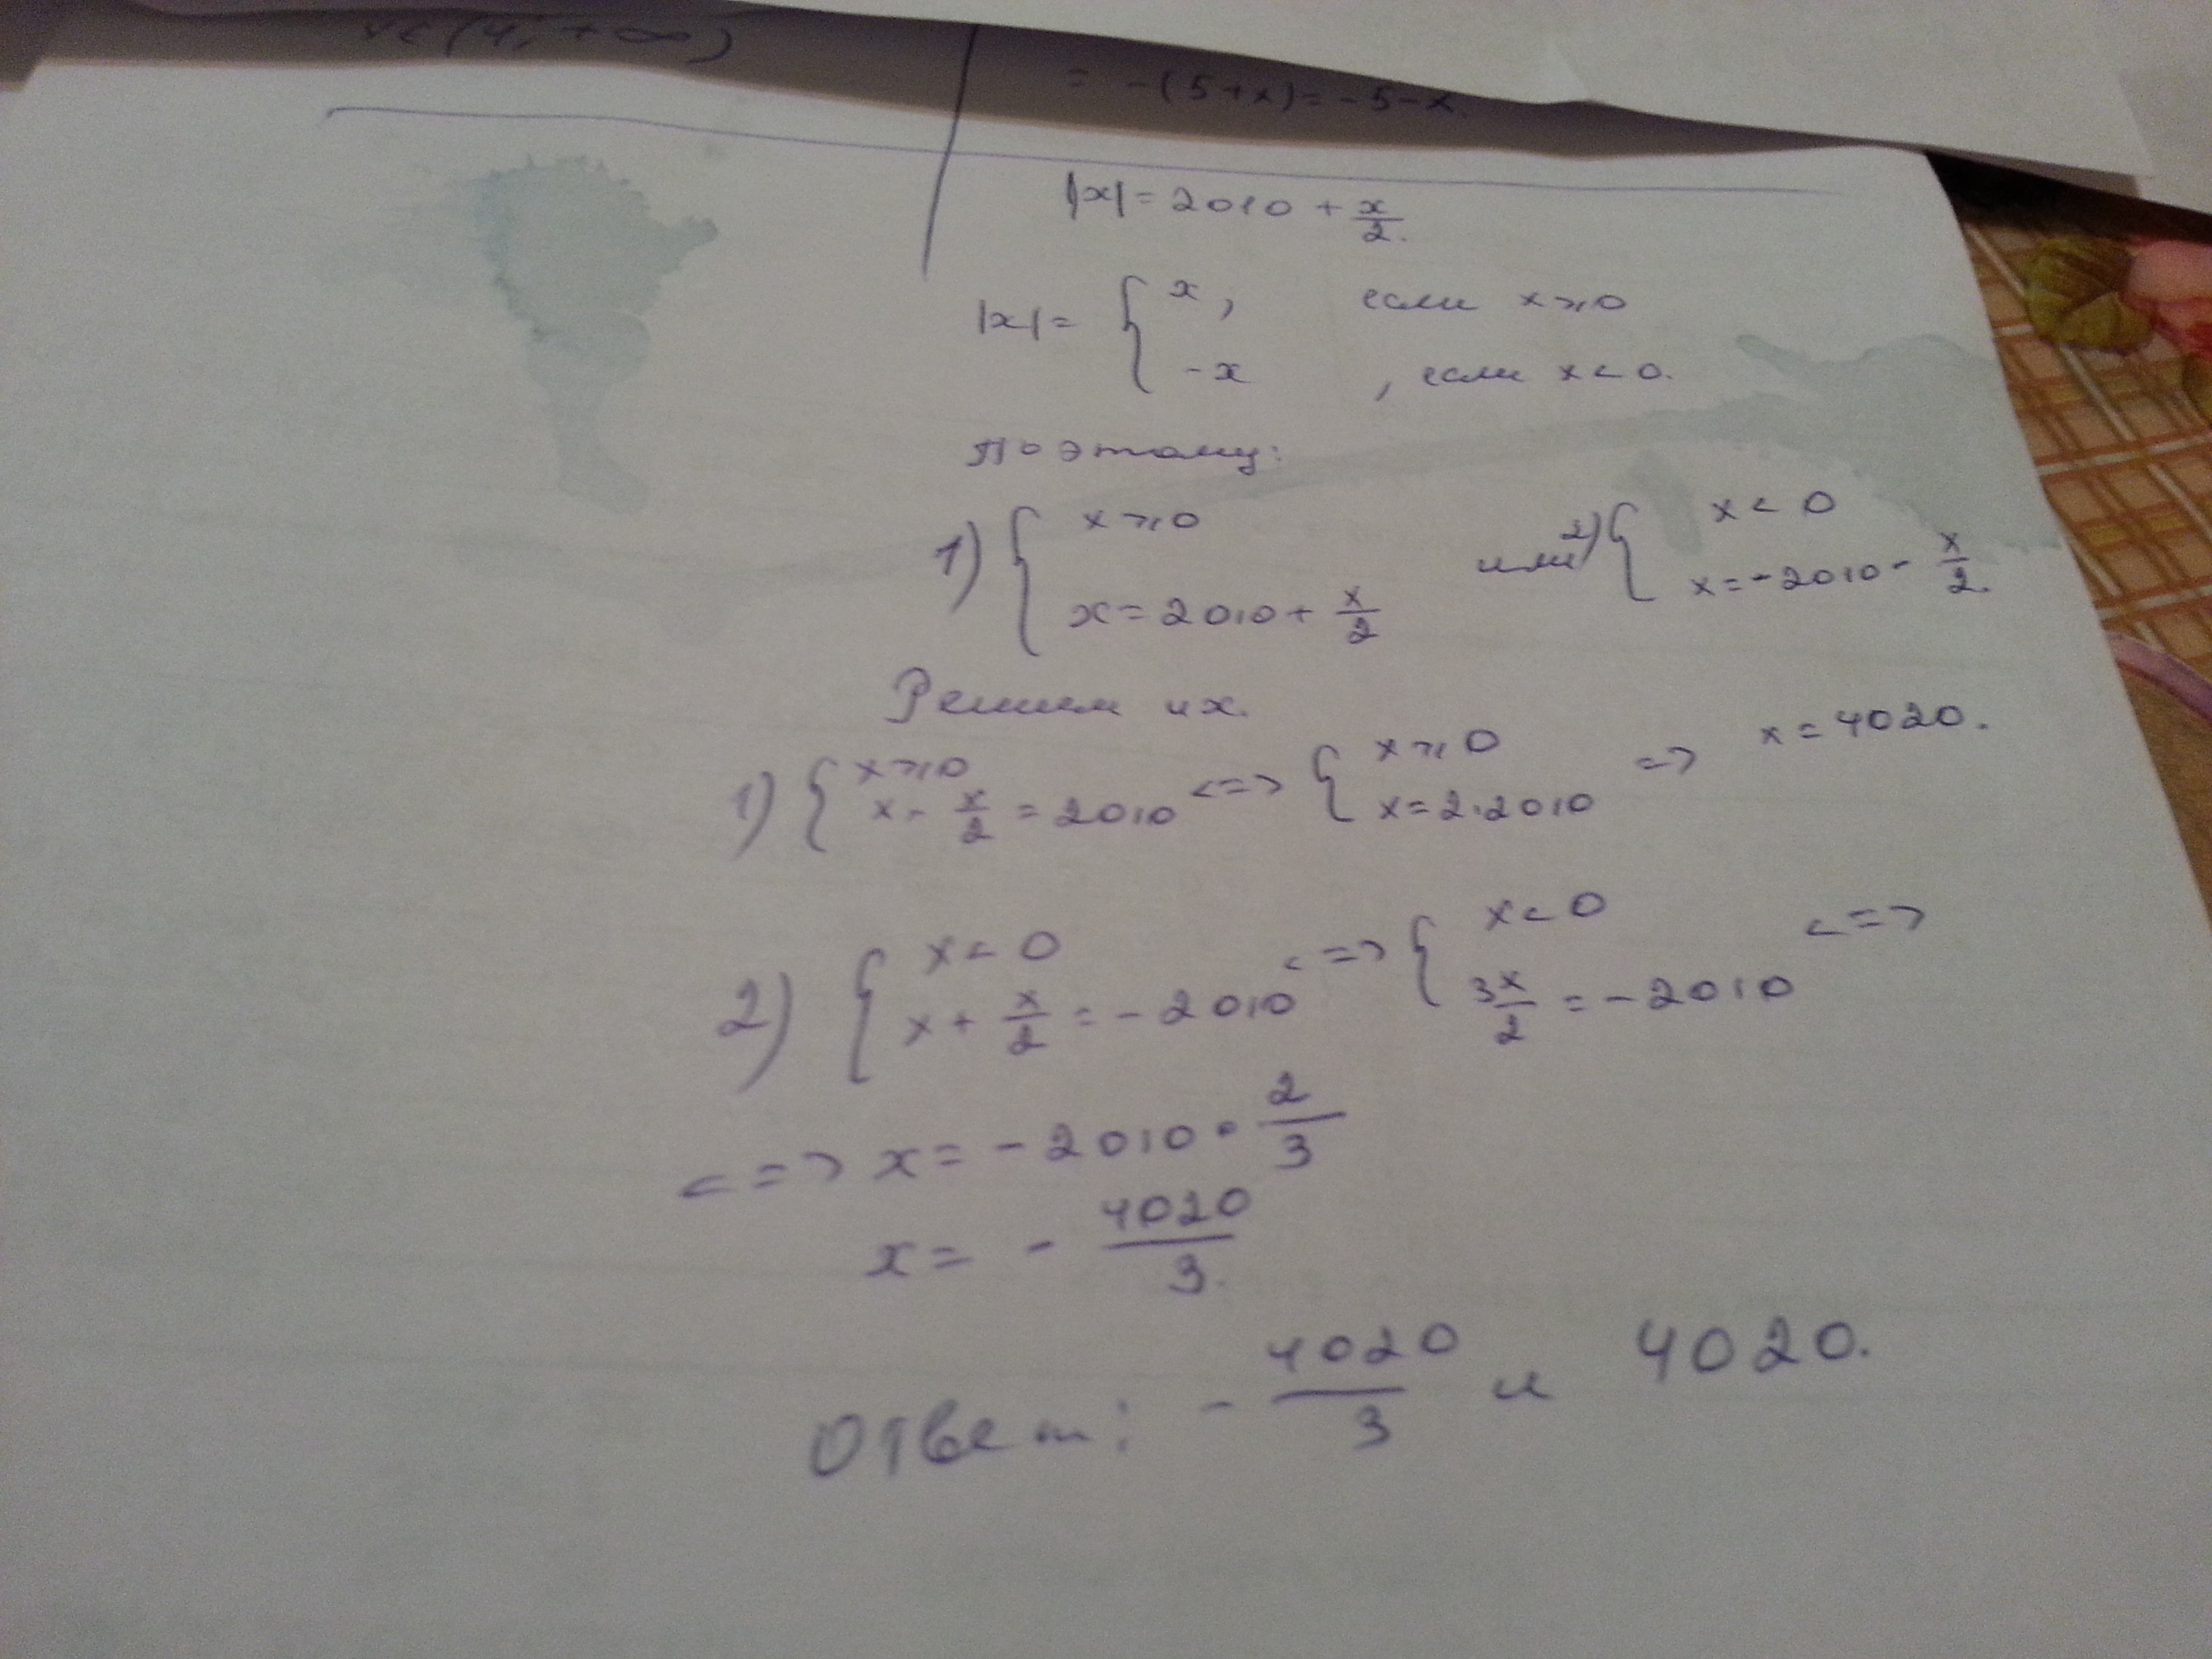 (4; +∞)
= -(5+x) = -5-x.
|x| = 2010 + x/2.
|x| = { x, если x ⩾ 0
-x , если x < 0.
Поэтому:
1) { x ⩾ 0
x = 2010 + x/2
или 2) { x < 0
x = -2010 - x/2.
Решим их.
1) { x ⩾ 0
x - x/2 = 2010 <=> { x ⩾ 0
x = 2·2010 => x = 4020.
2) { x < 0
x + x/2 = -2010 <=> { x < 0
3x/2 = -2010 <=>
<=> x = -2010 · 2/3
x = - 4020/3.
Ответ: - 4020/3 и 4020.